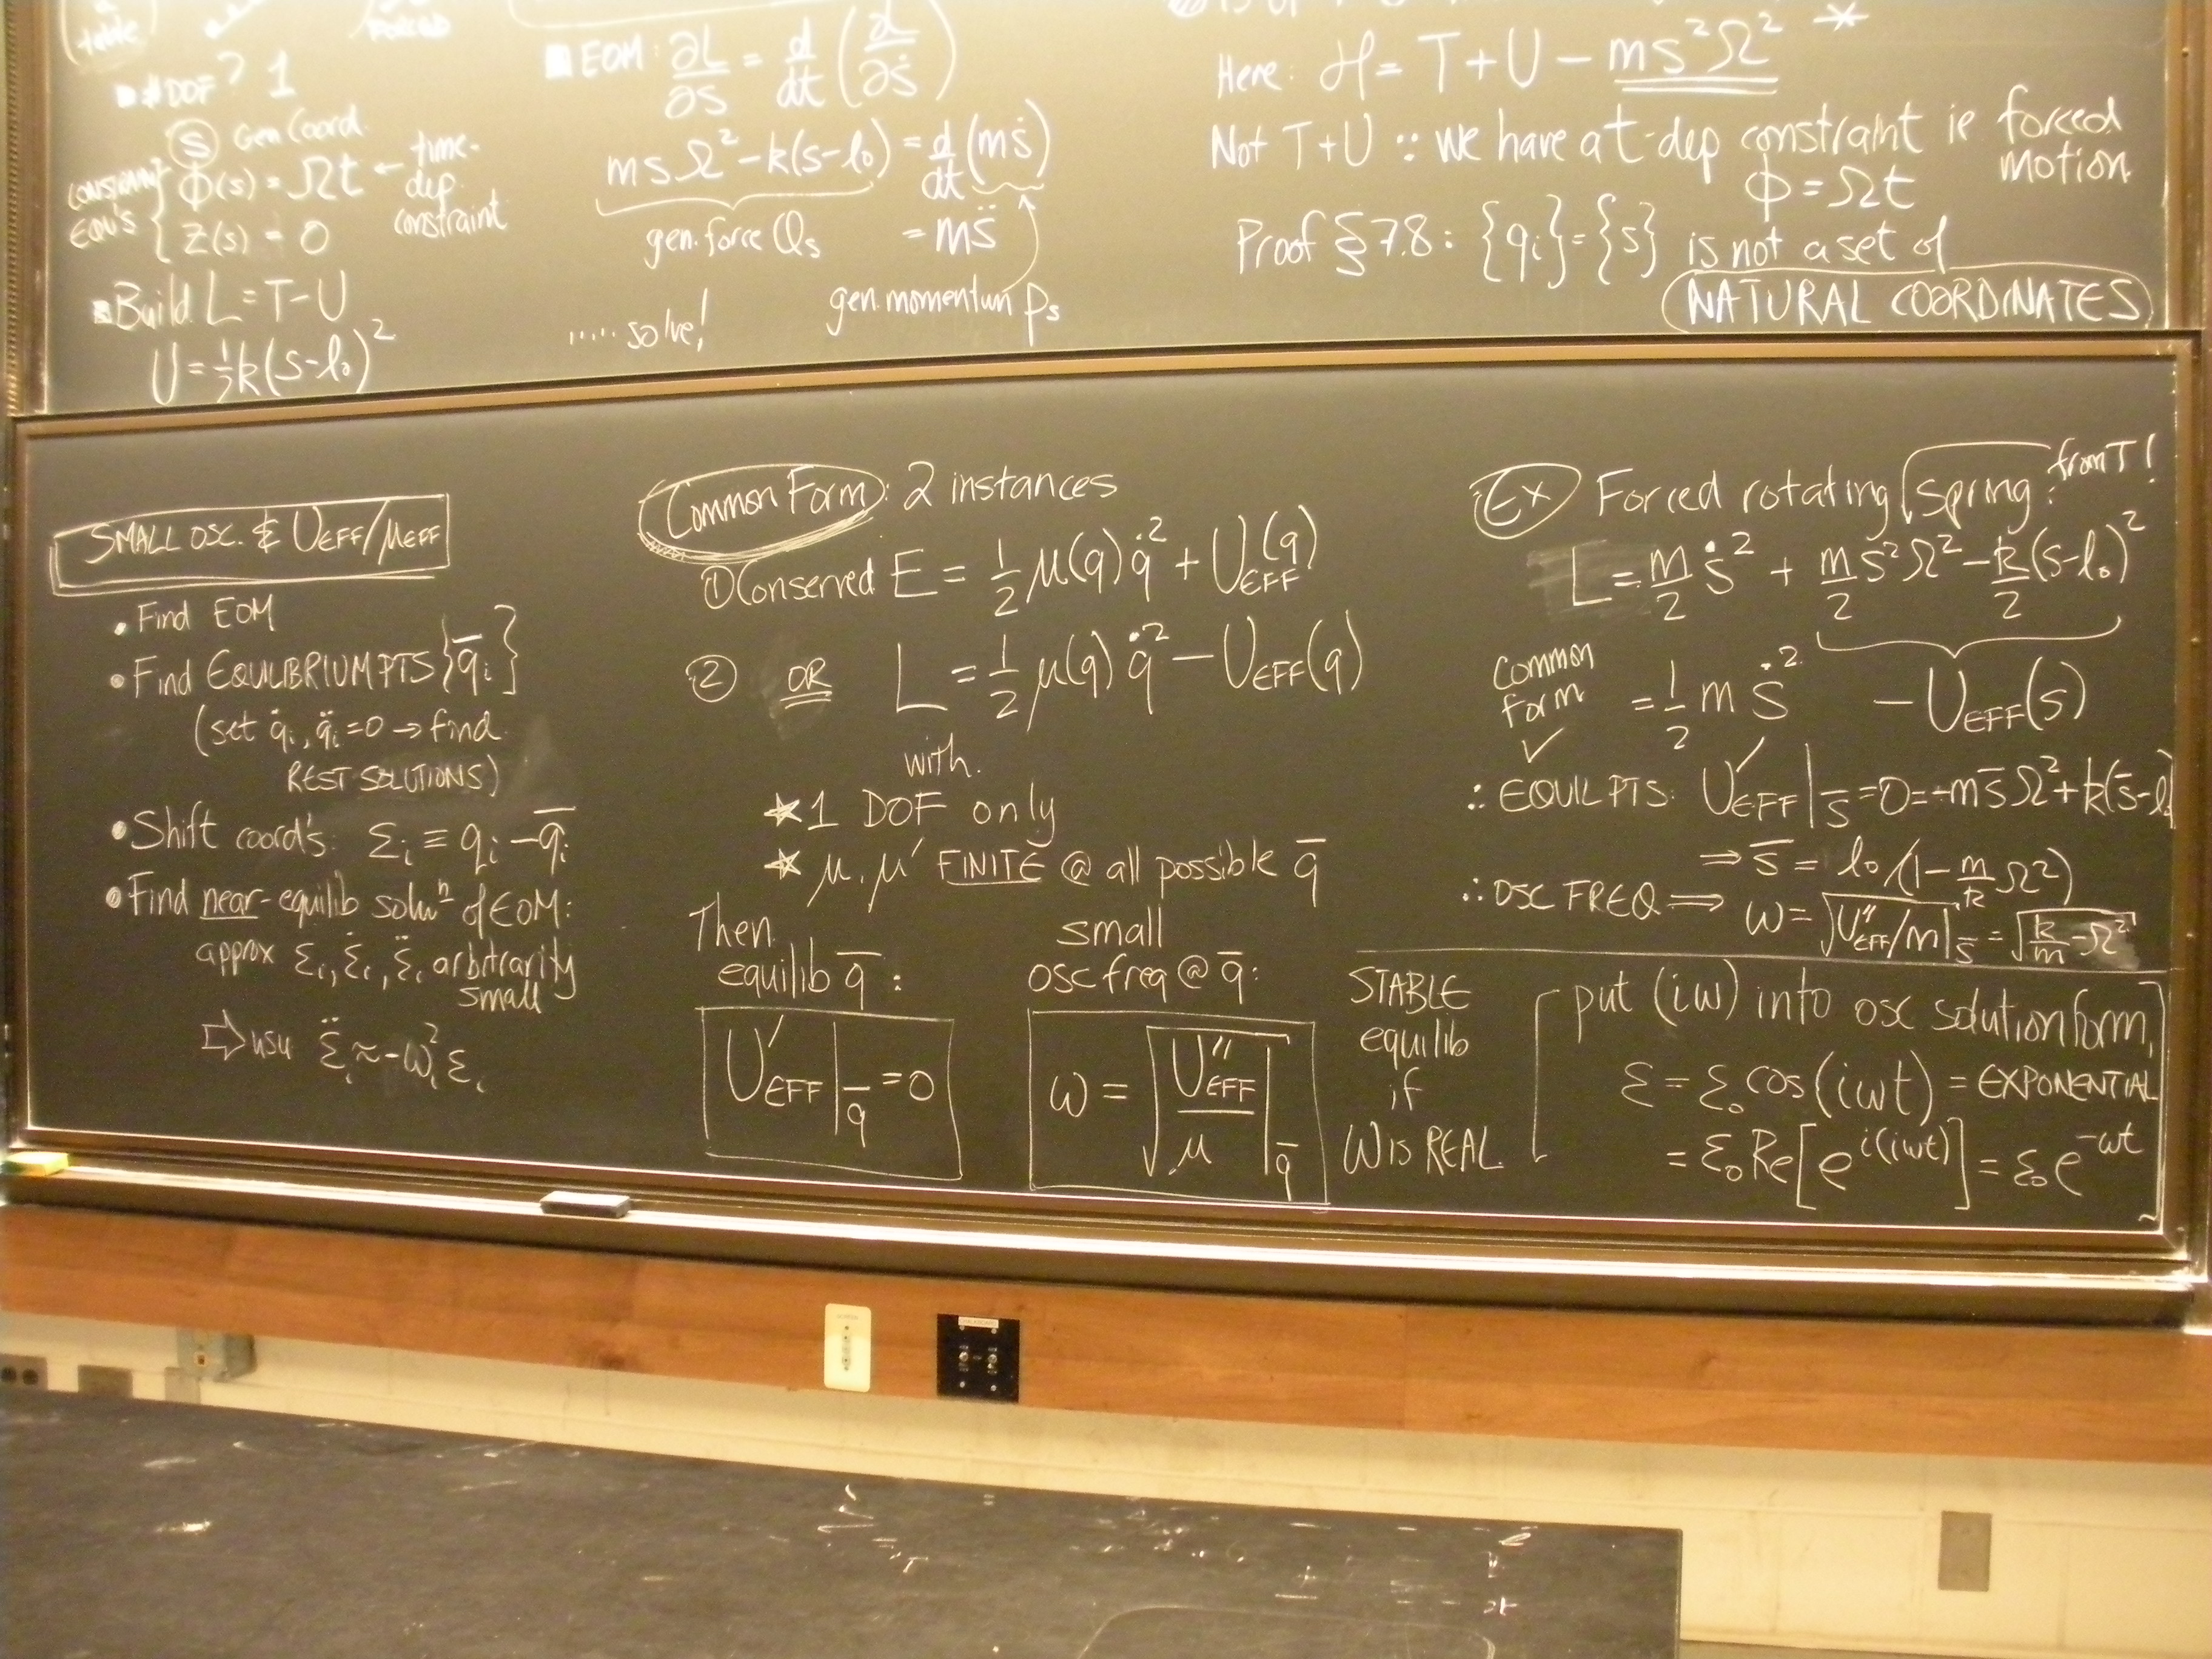 table
Forced
▪ #DOF? 1
Ⓢ Gen Coord.
CONSTRAINT EQU'S { Φ(s) = Ωt ← time-dep. constraint
Z(s) = 0
▪ Build L = T-U
U = ½k(s-l₀)²
▪ EOM: ∂L/∂s = d/dt (∂/∂ṡ)
msΩ² - k(s-l₀) = d/dt (mṡ)
gen. force Qs = ms̈
gen. momentum Ps
..... solve!
Here: ℋ = T + U - ms²Ω² *
Not T+U ∵ we have a t-dep constraint ie forced motion
Φ = Ωt
Proof §7.8: {qᵢ} = {s} is not a set of
NATURAL COORDINATES
SMALL OSC. & U_EFF/μ_EFF
• Find EOM
• Find EQUILIBRIUM PTS {q̄ᵢ}
(set q̇ᵢ, q̈ᵢ = 0 → find
REST SOLUTIONS)
• Shift coord's: εᵢ ≡ qᵢ - q̄ᵢ
• Find near-equilib soluⁿ of EOM:
approx εᵢ, ε̇ᵢ, ε̈ᵢ arbitrarity
small
⇨ usu ε̈ᵢ ≈ -ωᵢ² εᵢ
Common Form: 2 instances
① Conserved E = 1/2 μ(q) q̇² + U_EFF(q)
② OR L = 1/2 μ(q) q̇² - U_EFF(q)
with.
★ 1 DOF only
★ μ, μ' FINITE @ all possible q̄
Then equilib q̄:
U'_EFF|q̄ = 0
small osc freq @ q̄:
ω = √(U''_EFF/μ)|q̄
STABLE
equilib
if
ω is REAL
Ex Forced rotating spring: from T!
L = m/2 ṡ² + m/2 s²Ω² - k/2 (s-l₀)²
common form ✓ = 1/2 m ṡ² - U_EFF(s)
∴ EQUIL PTS: U'_EFF|s̄ = 0 = -ms̄Ω² + k(s̄-l
⇒ s̄ = l₀/(1 - m/k Ω²)
∴ OSC FREQ ⇒ ω = √(U''_EFF/m)|s̄ = √(k/m - Ω²)
[put (iω) into osc solution form,
ε = ε₀ cos(iωt) = EXPONENTIAL
= ε₀ Re[e^{i(iωt)}] = ε₀ e^{-ωt}]